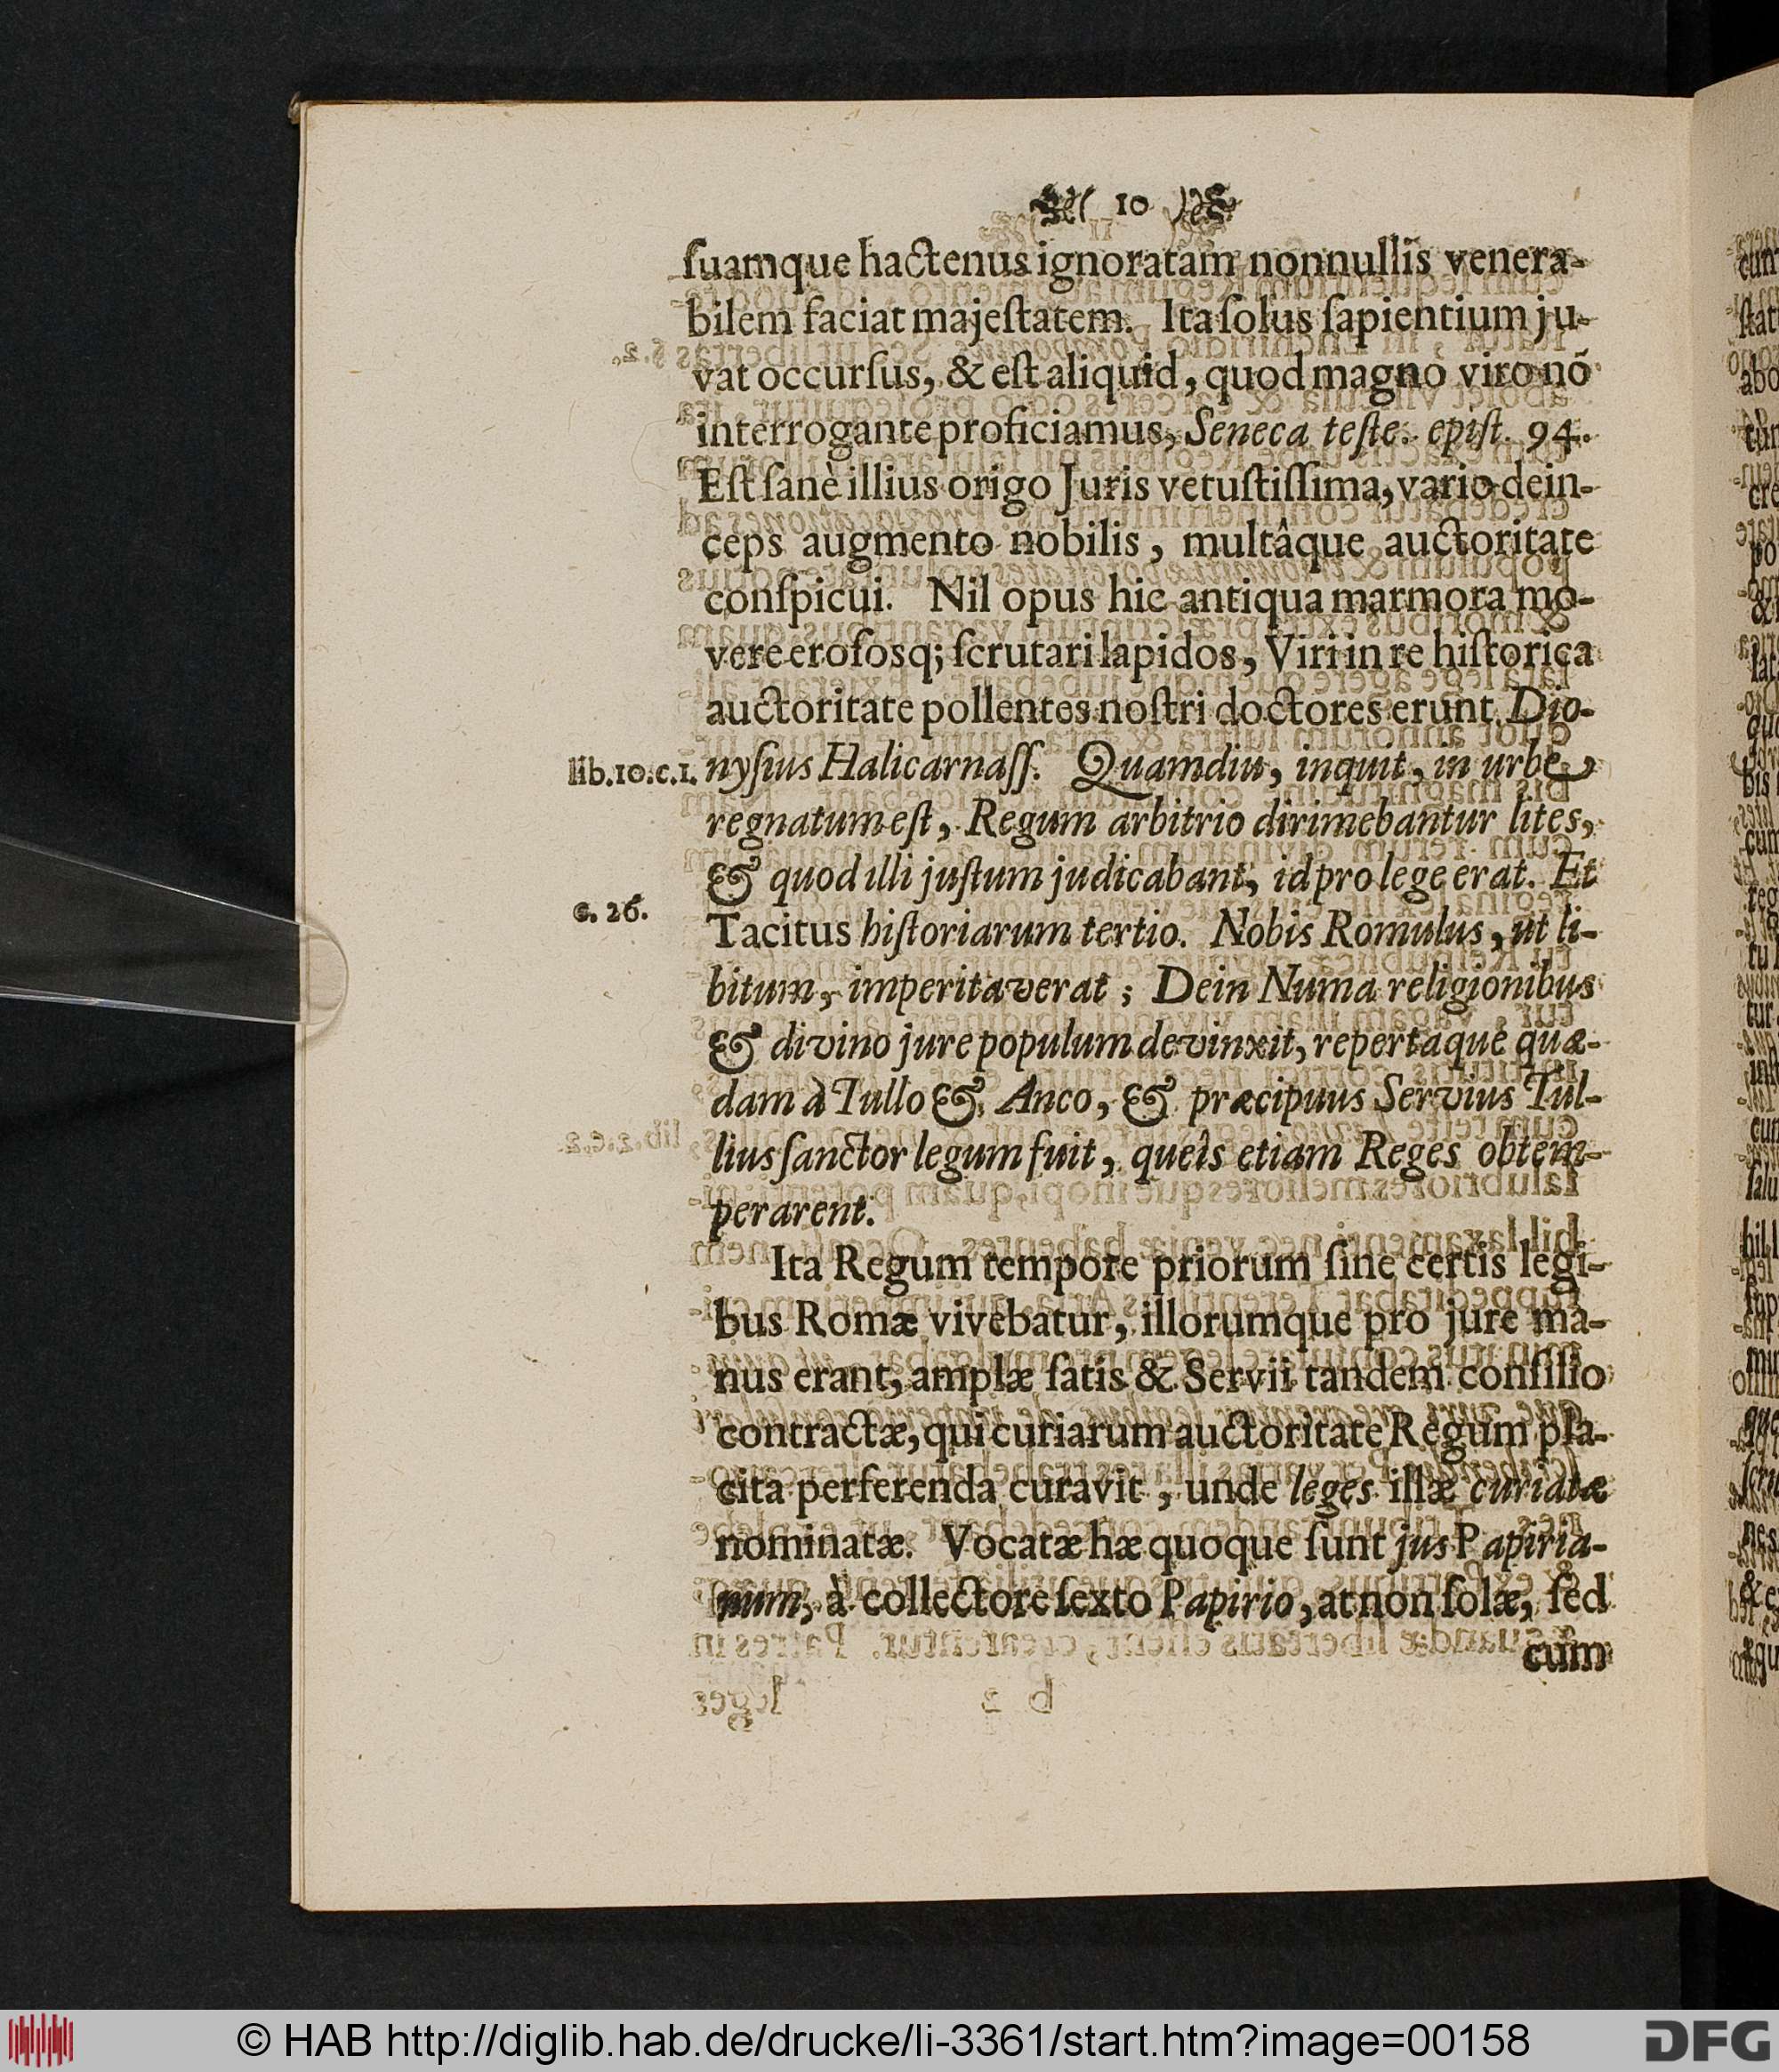 10
ſuamque hactenus ignoratam nonnullis venera-
bilem faciat majeſtatem. Ita ſolus ſapientium ju-
vat occurſus, & eſt aliquid, quod magno viro nõ
interrogante proficiamus, Seneca teſte. epiſt. 94.
Eſt ſanè illius origo Juris vetuſtiſſima, vario dein-
ceps augmento nobilis, multâque auctoritate
conſpicui. Nil opus hic antiqua marmora mo-
vere eroſosq; ſcrutari lapidos, Viri in re hiſtorica
auctoritate pollentes noſtri doctores erunt. Dio-
lib.10.c.1. nyſius Halicarnaſſ. Quamdiu, inquit, in urbe
regnatum eſt, Regum arbitrio dirimebantur lites,
& quod illi juſtum judicabant, id pro lege erat. Et
c. 26. Tacitus hiſtoriarum tertio. Nobis Romulus, ut li-
bitum, imperitaverat; Dein Numa religionibus
& divino jure populum devinxit, repertaque quæ-
dam à Tullo & Anco, & præcipuus Servius Tul-
lius ſanctor legum fuit, queîs etiam Reges obtem-
perarent.
Ita Regum tempore priorum ſine certis legi-
bus Romæ vivebatur, illorumque pro jure ma-
nus erant, amplæ ſatis & Servii tandem conſilio
contractæ, qui curiarum auctoritate Regum pla-
cita perferenda curavit, unde leges illæ curiatæ
nominatæ. Vocatæ hæ quoque ſunt jus Papiria-
num, à collectore ſexto Papirio, at non ſolæ, ſed
cum
© HAB http://diglib.hab.de/drucke/li-3361/start.htm?image=00158
DFG